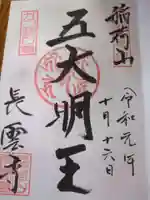 稲荷山
五大明王
令和元年
十月十六日
長雲寺